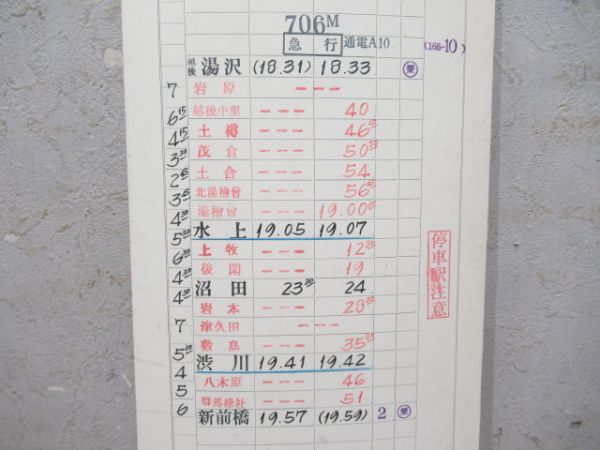 706M
急行 通電A10 (165-10)
越後湯沢 (18.31) 18.33 乗
7 岩原 ---
6 15 越後中里 --- 40
4 15 土樽 --- 46
3 茂倉 --- 50
2 45 土合 --- 54
3 45 北湯檜曽 --- 56
4 湯檜曽 --- 19.00
5 水上 19.05 19.07
6 上牧 --- 12
4 後閑 --- 19
4 沼田 23 24
岩本 --- 28
7 津久田 ---
敷島 --- 35
5 渋川 19.41 19.42
4 八木原 --- 46
5 群馬総社 --- 51
6 新前橋 19.57 (19.59) 2 乗
停車駅注意